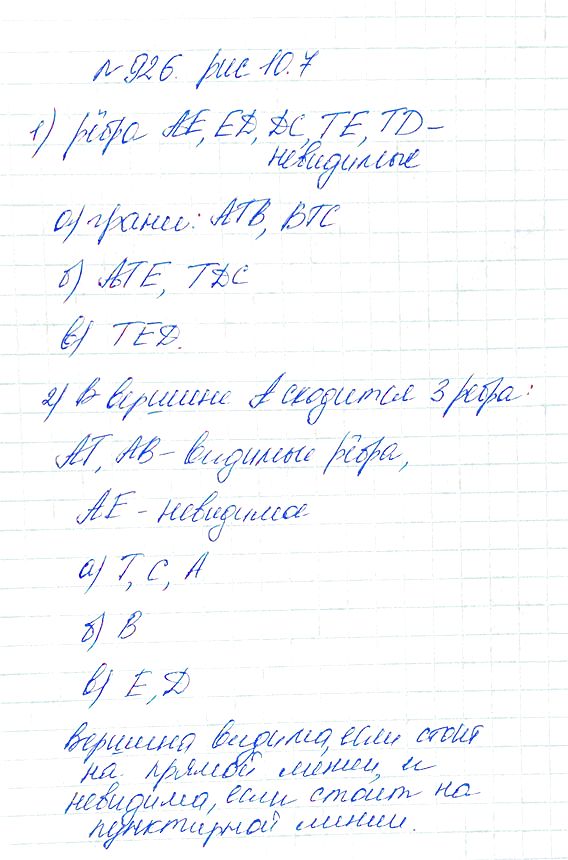 №926. рис 10.7
1) рёбра AE, ED, DC, TE, TD –
невидимые
а) грани: ATB, BTC
б) ATE, TDC
в) TED.
2) В вершине A сходится 3 ребра:
AT, AB – видимые рёбра,
AE – невидимое
а) T, C, A
б) B
в) E, D
Вершина видима, если стоит
на прямой линии, и
невидима, если стоит на
пунктирной линии.